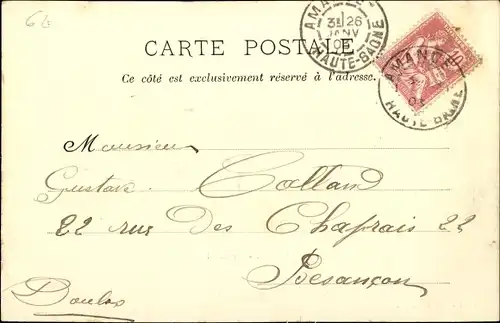 6L
AMANCE
3E 26
JANV
HAUTE-SAONE
10
AMANCE
HAUTE-SAONE
CARTE POSTALE
Ce côté est exclusivement réservé à l'adresse.
Monsieur
Gustave Colland
22 rue des Chaprais 22
Besançon
Doubs